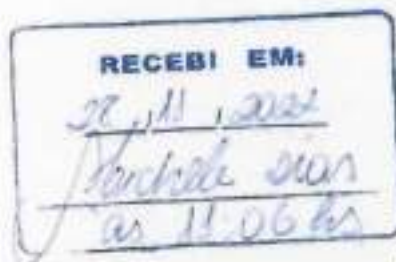 RECEBI EM:
, 11 , 2022
Dias
as 11:06 hs